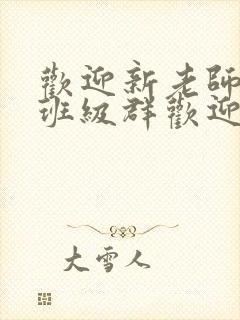 歡迎新老師
班級群歡迎
大雪人